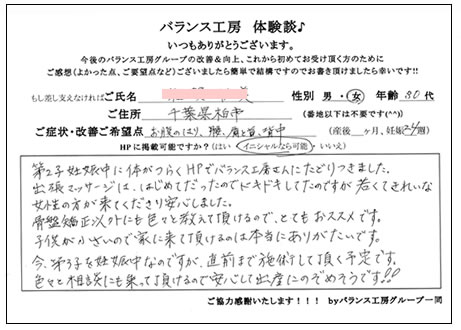 バランス工房 体験談♪
いつもありがとうございます。
今後のバランス工房グループの改善&向上、これから初めてお受け頂く方のために
ご感想（よかった点、ご要望点など）ございましたら簡単で結構ですのでお書き頂けましたら幸いです!!
もし差し支えなければご氏名 性別 男・女 年齢 30代
ご住所 千葉県柏市 （番地以下は不要です(^^)）
ご症状・改善ご希望点 お腹のはり、腰、肩と首、背中 （産後 ヶ月、妊娠24週）
HPに掲載可能ですか？（はい イニシャルなら可能 ・ いいえ）
第2子妊娠中に体がつらくHPでバランス工房さんにたどりつきました。
出張マッサージは、はじめてだったのでドキドキしてたのですが若くてきれいな
女性の方が来てくださり安心しました。
骨盤矯正以外にも色々と教えて頂けるので、とてもおススメです。
子供が小さいので家に来て頂けるのは本当にありがたいです。
今、第3子を妊娠中なのですが、直前まで施術して頂く予定です。
色々と相談にも乗って頂けるので安心して出産にのぞめそうです!!
ご協力感謝いたします！！！ byバランス工房グループ一同